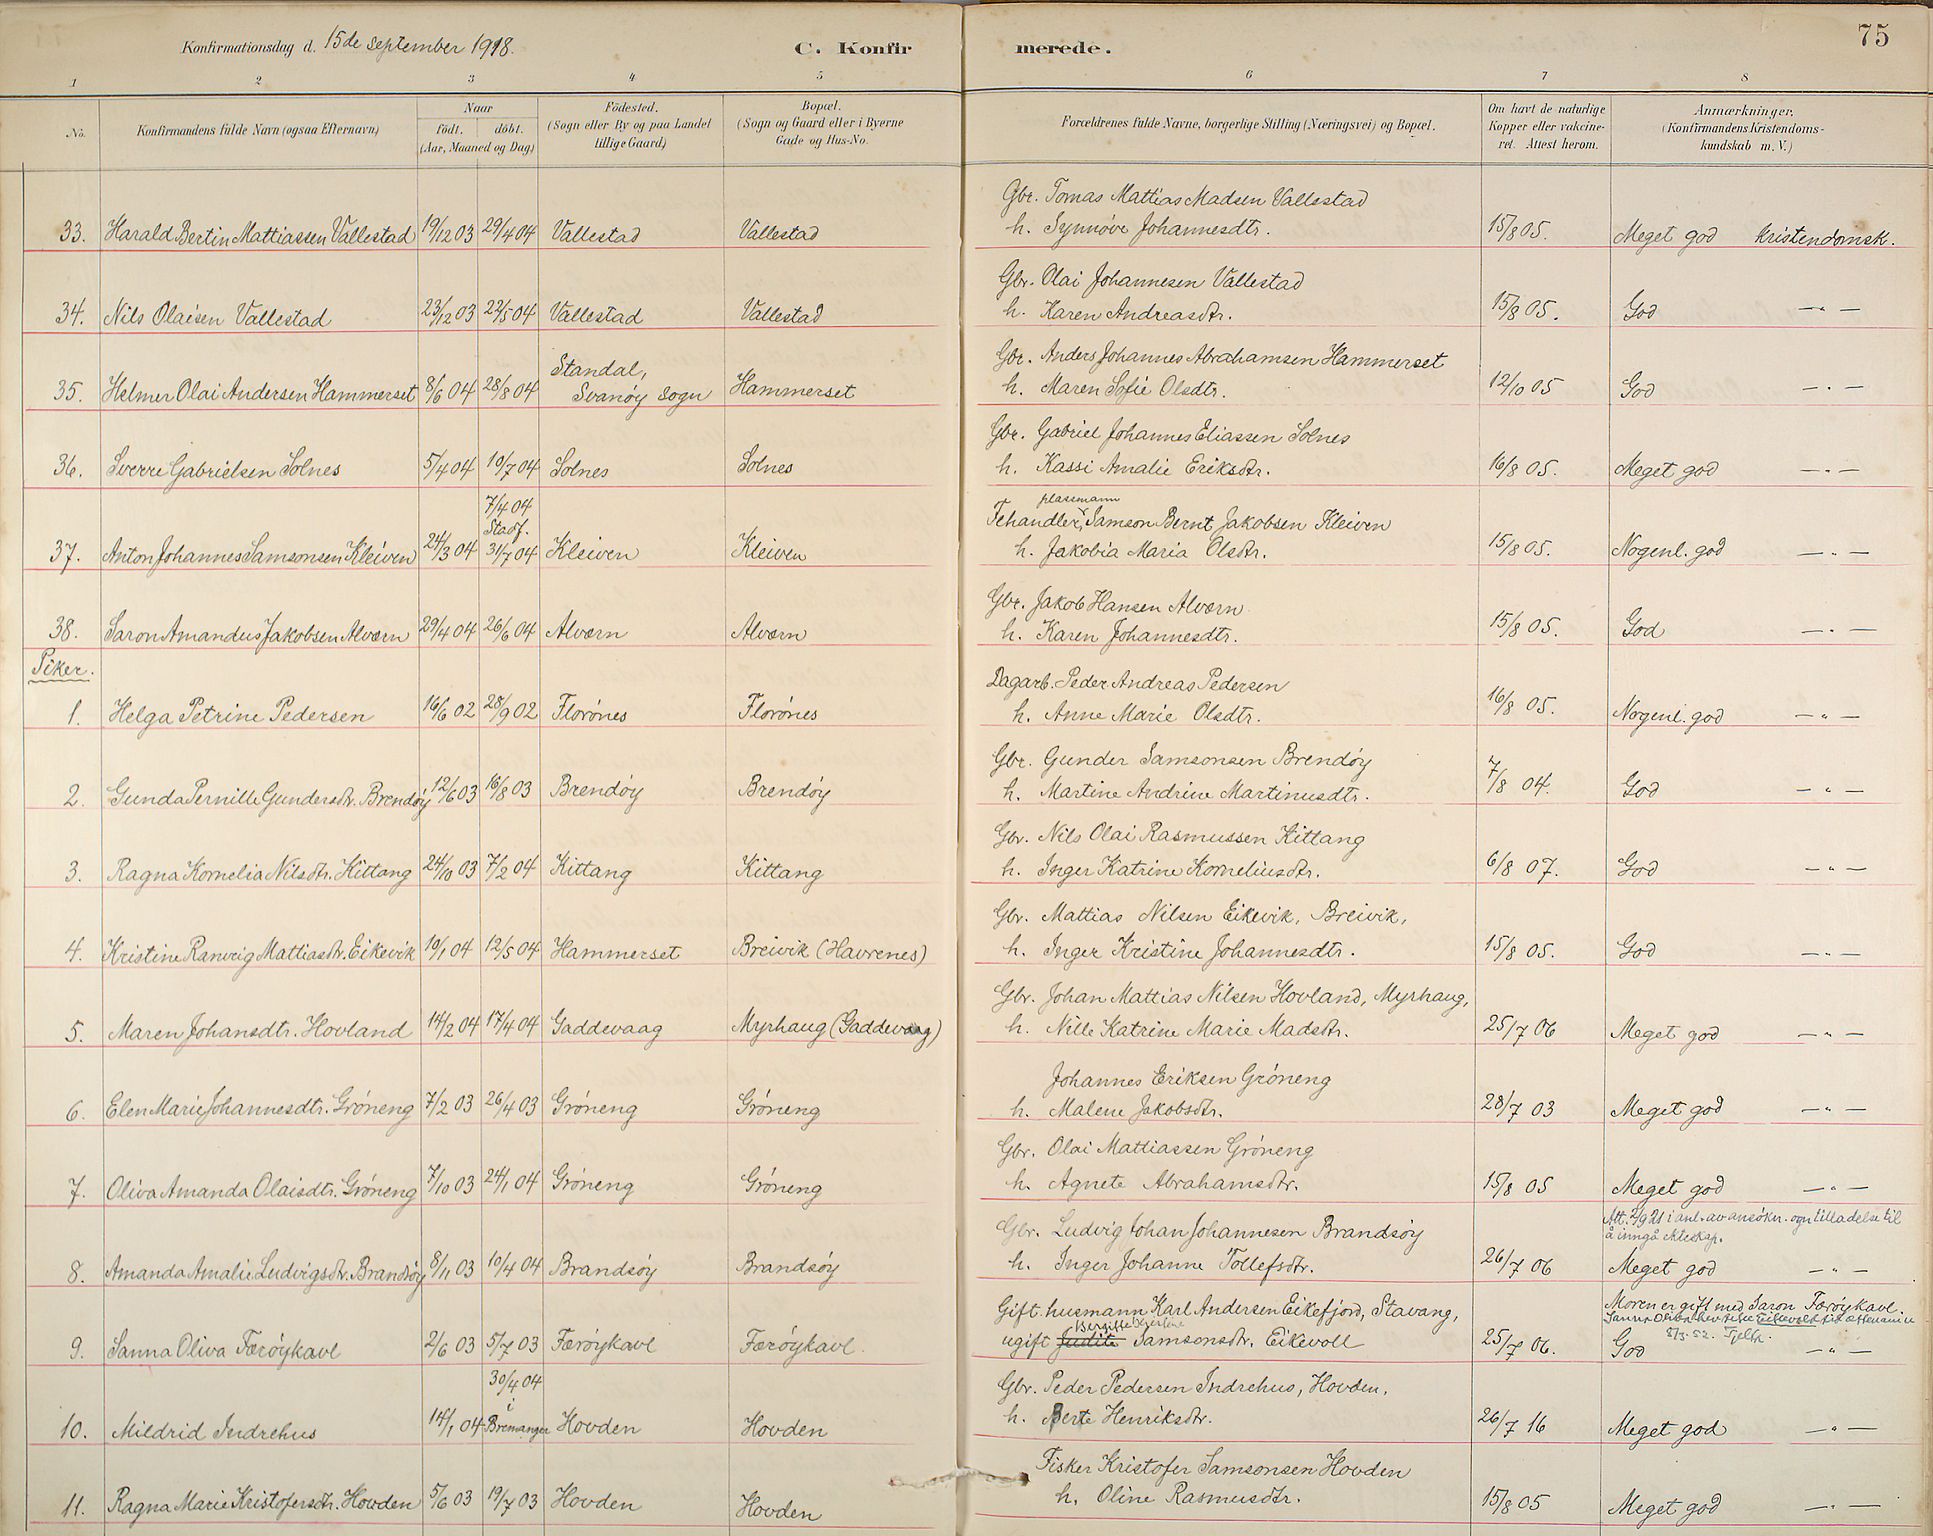 Konfirmationsdag d. 15de september 1918.
C. Konfirmerede.
75
1 2 3 4 5 6 7 8
No.
Konfirmandens fulde Navn (ogsaa Efternavn)
Naar
födt. döbt.
(Aar, Maaned og Dag)
Födested.
(Sogn eller By og paa Landet
tillige Gaard)
Bopæl.
(Sogn og Gaard eller i Byerne
Gade og Hus-No.
Forældrenes fulde Navne, borgerlige Stilling (Næringsvei) og Bopæl.
Om havt de naturlige
Kopper eller vakcine-
ret. Attest herom.
Anmærkninger.
(Konfirmandens Kristendoms-
kundskab m. V.)
Gbr. Tomas Mattias Madsen Vallestad
33. Harald Bertin Mattiassen Vallestad 19/12 03 29/4 04 Vallestad Vallestad h. Synnöve Johannesdtr. 15/8 05. Meget god Kristendomsk.
Gbr. Olai Johannesen Vallestad
34. Nils Olaisen Vallestad 23/12 03 22/5 04 Vallestad Vallestad h. Karen Andreasdtr. 15/8 05. God — " —
Gbr. Anders Johannes Abrahamsen Hammerset
35. Helmer Olai Andersen Hammerset 8/6 04 28/8 04 Standal, Svanöy sogn Hammerset h. Maren Sofie Olsdtr. 12/10 05 God — " —
Gbr. Gabriel Johannes Eliassen Solnes
36. Sverre Gabrielsen Solnes 5/4 04 10/7 04 Solnes Solnes h. Kassi Amalie Eriksdtr. 16/8 05. Meget god — " —
plassmann
Fehandler, Samson Bernt Jakobsen Kleiven
37. Anton Johannes Samsonsen Kleiven 24/3 04 7/4 04 Stadf. 31/7 04 Kleiven Kleiven h. Jakobia Maria Olsdtr. 15/8 05. Nogenl. god — " —
Gbr. Jakob Hansen Alværn
38. Saron Amandus Jakobsen Alværn 29/4 04 26/6 04 Alværn Alværn h. Karen Johannesdtr. 15/8 05. God — " —
Piker.
Dagarb. Peder Andreas Pedersen
1. Helga Petrine Pedersen 16/6 02 28/9 02 Florönes Florönes h. Anne Marie Olsdtr. 16/8 05. Nogenl. god — " —
Gbr. Gunder Samsonsen Brendöy
2. Gunda Pernille Gundersdtr. Brendöy 12/6 03 16/8 03 Brendöy Brendöy h. Martine Andrine Martinusdtr. 7/8 04. God — " —
Gbr. Nils Olai Rasmussen Kittang
3. Ragna Kornelia Nilsdtr. Kittang 24/10 03 7/2 04 Kittang Kittang h. Inger Katrine Korneliusdtr. 6/8 07. God — " —
Gbr. Mattias Nilsen Eikevik, Breivik,
4. Kristine Ranveig Mattiasdtr. Eikevik 10/1 04 12/5 04 Hammerset Breivik (Havrenes) h. Inger Kristine Johannesdtr. 15/8 05. God — " —
Gbr. Johan Mattias Nilsen Hovland, Myrhaug,
5. Maren Johansdtr. Hovland 14/2 04 17/4 04 Gaddevaag Myrhaug (Gaddevaag) h. Nille Katrine Marie Madsdtr. 25/7 06 Meget god — " —
Johannes Eriksen Gröneng
6. Elen Marie Johannesdtr. Gröneng 7/2 03 26/4 03 Gröneng Gröneng h. Malene Jakobsdtr. 28/7 03 Meget god — " —
Gbr. Olai Mattiassen Gröneng
7. Oliva Amanda Olaisdtr. Gröneng 7/10 03 24/1 04 Gröneng Gröneng h. Agnete Abrahamsdtr. 15/8 05 Meget god — " —
Att. 2/9 21 i anl. av ansökn. ogn tilladelse til
å inngå ekteskap.
Gbr. Ludvig Johan Johannesen Brandsöy
8. Amanda Amalie Ludvigsdtr. Brandsöy 8/11 03 10/4 04 Brandsöy Brandsöy h. Inger Johanne Tollefsdtr. 26/7 06 Meget god — " —
Gift husmann Karl Andersen Eikefjord, Stavang,
Moren er gift med Saron Færöykavl.
9. Sanna Oliva Færöykavl 2/6 03 5/7 03 Færöykavl Færöykavl. ugift Judite Bergitte Samsonsdtr. Eikevoll 25/7 06. God — " —
Gbr. Peder Pedersen Indrehus, Hovden,
10. Mildrid Indrehus 14/1 04 30/4 04 i Bremanger Hovden Hovden h. Berte Henriksdtr. 26/7 16 Meget god — " —
Fisker Kristofer Samsonsen Hovden
11. Ragna Marie Kristofersdtr. Hovden 5/6 03 19/7 03 Hovden Hovden h. Oline Rasmusdtr. 15/8 05 Meget god — " —